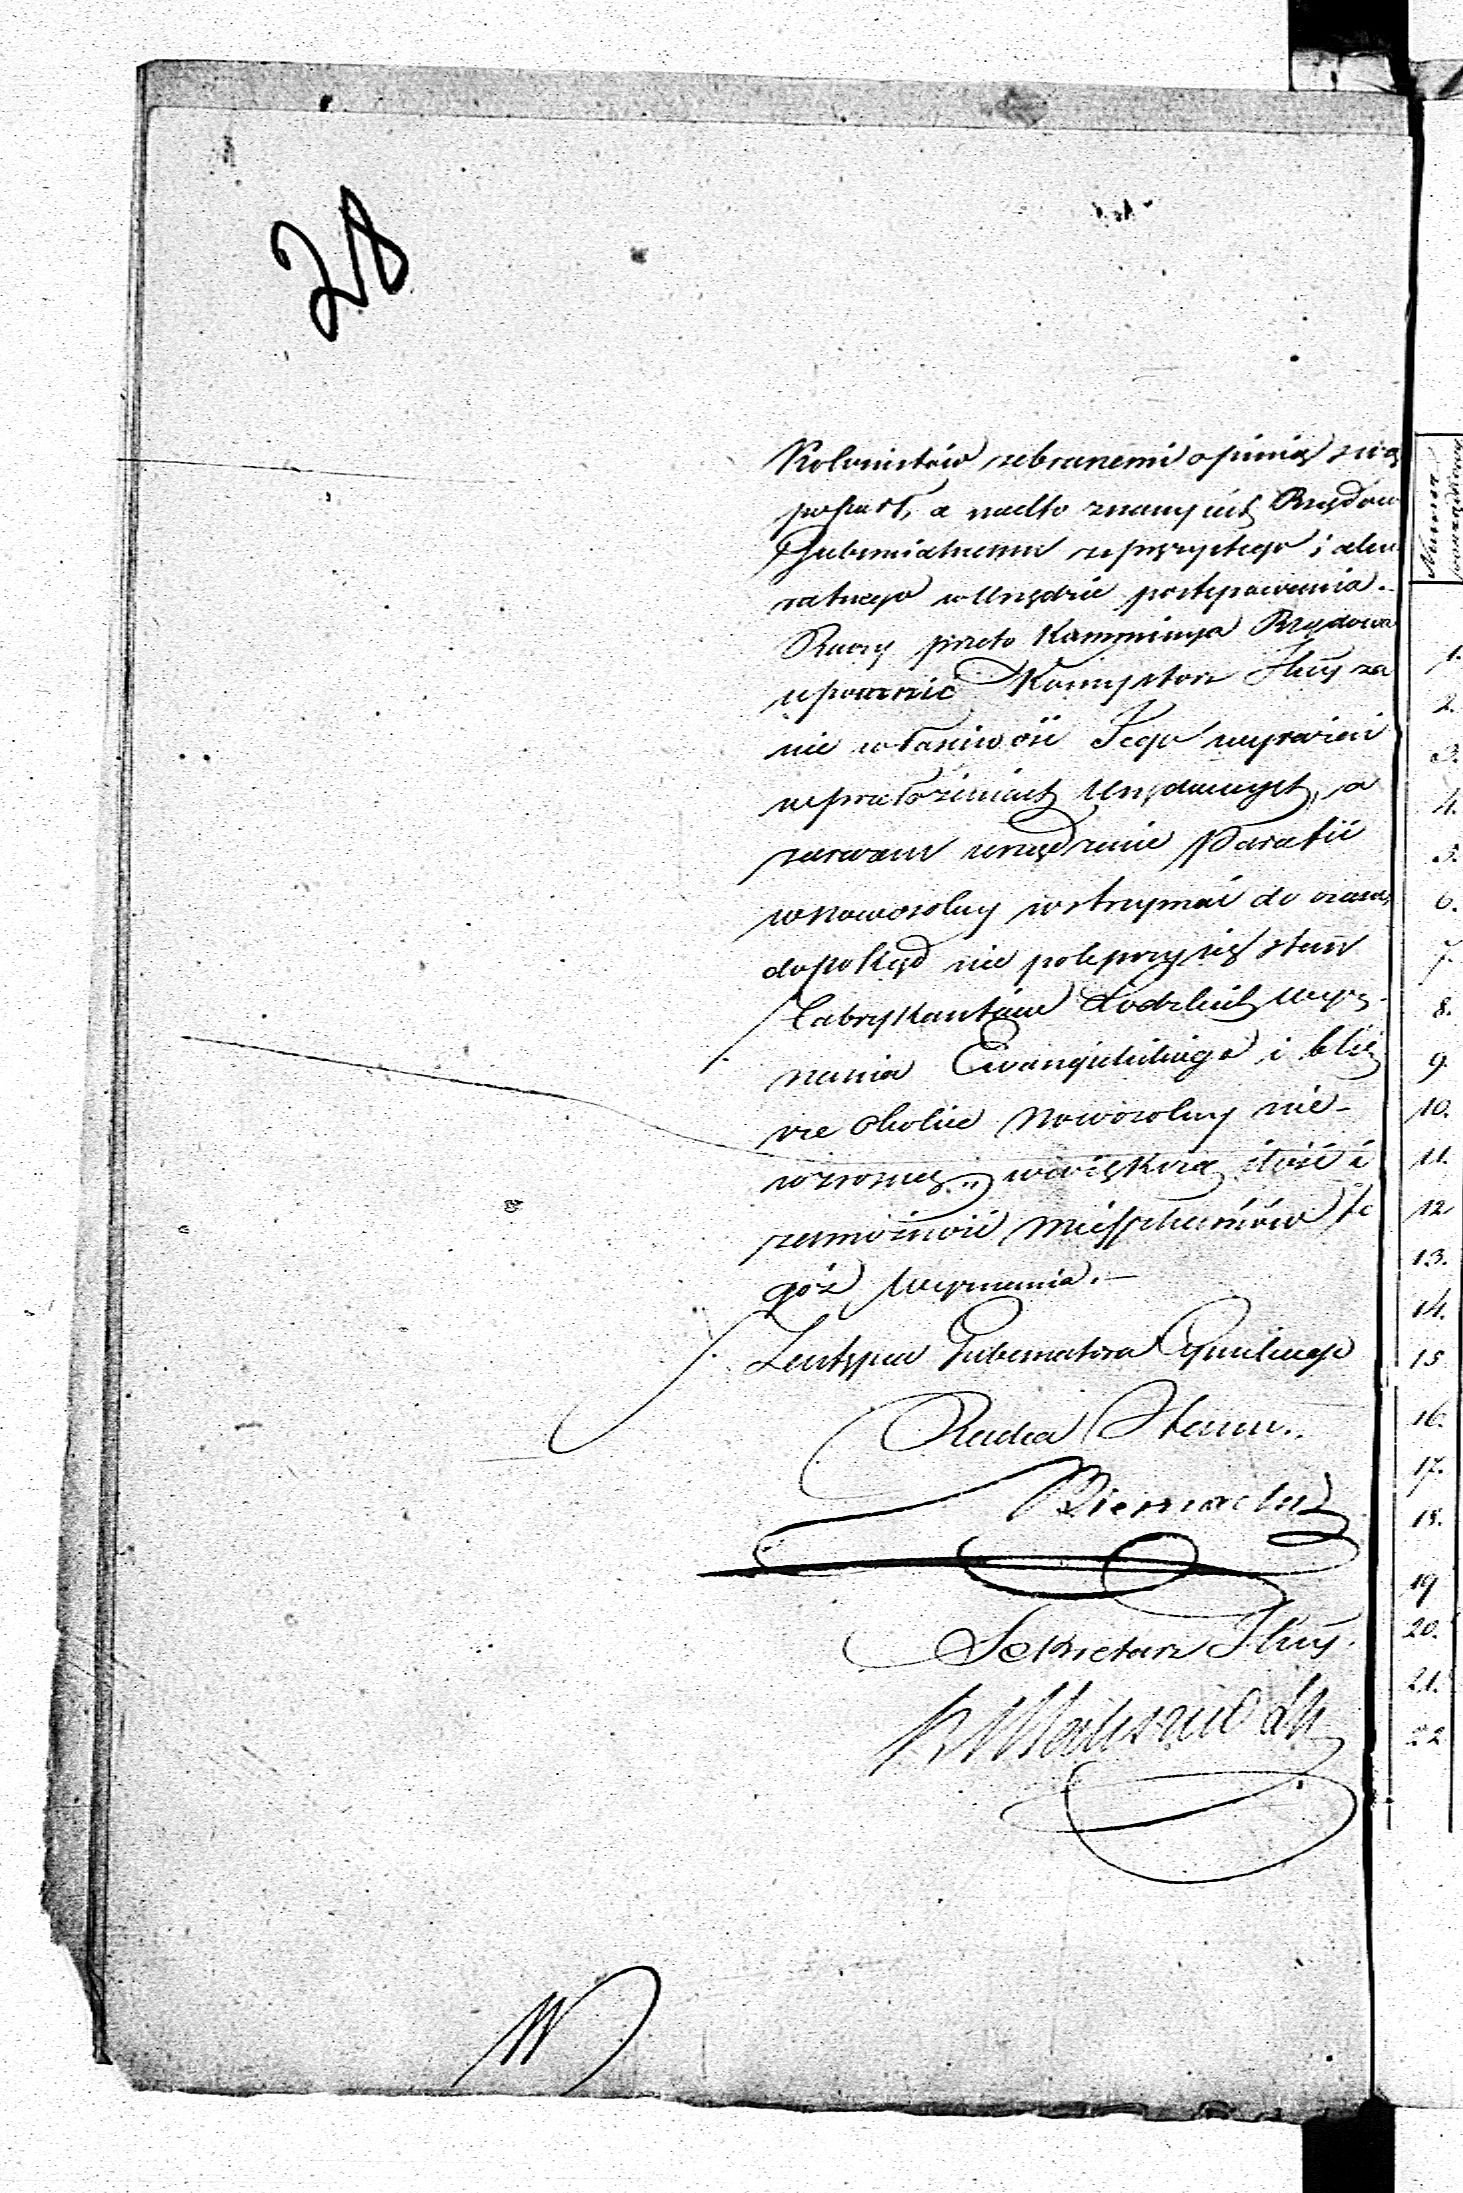 28
Kolonistów zebranemi opinią swą
poparł, a nadto znanych Rządowi
Gubernialnemu
ratnego w Urzędzie postępowania.
Raczy przeto Kommissya Rządowa
upomnić Konsystorz Jlny za
nie właściwość Jego wyrażeń
w przełożeniach Urzędowych, a
zarazem urządzenie Parafii
w Nowosolny wstrzymać do czasu,
dopokąd nie polepszy się stan
Fabrykantów Łódzkich Wyz-
nania Ewangelickiego i bliż
sze okolice Nowosolny nie-
wzrosną w większą ilość i
zamożność mieszkańców te
goż Wyznania.—
Zastępca Gubernatora Cywilnego
Radca Stanu.
Biernacki
Sekretarz Jlny.
Numer
porządkowy
1.
2.
3.
4.
5.
6.
7.
8.
9.
10.
11.
12
13.
14.
15
16.
17.
18.
19
20.
21.
22